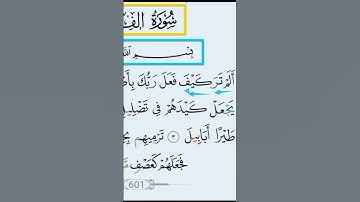 سُورَةُ الفِ
بِسْمِ اللَّهِ
أَلَمْ تَرَ كَيْفَ فَعَلَ رَبُّكَ بِأَصْ
يَجْعَلْ كَيْدَهُمْ فِي تَضْلِيلٍ
طَيْرًا أَبَابِيلَ ٣ تَرْمِيهِم بِحِ
فَجَعَلَهُمْ كَعَصْفٍ مَّ
601